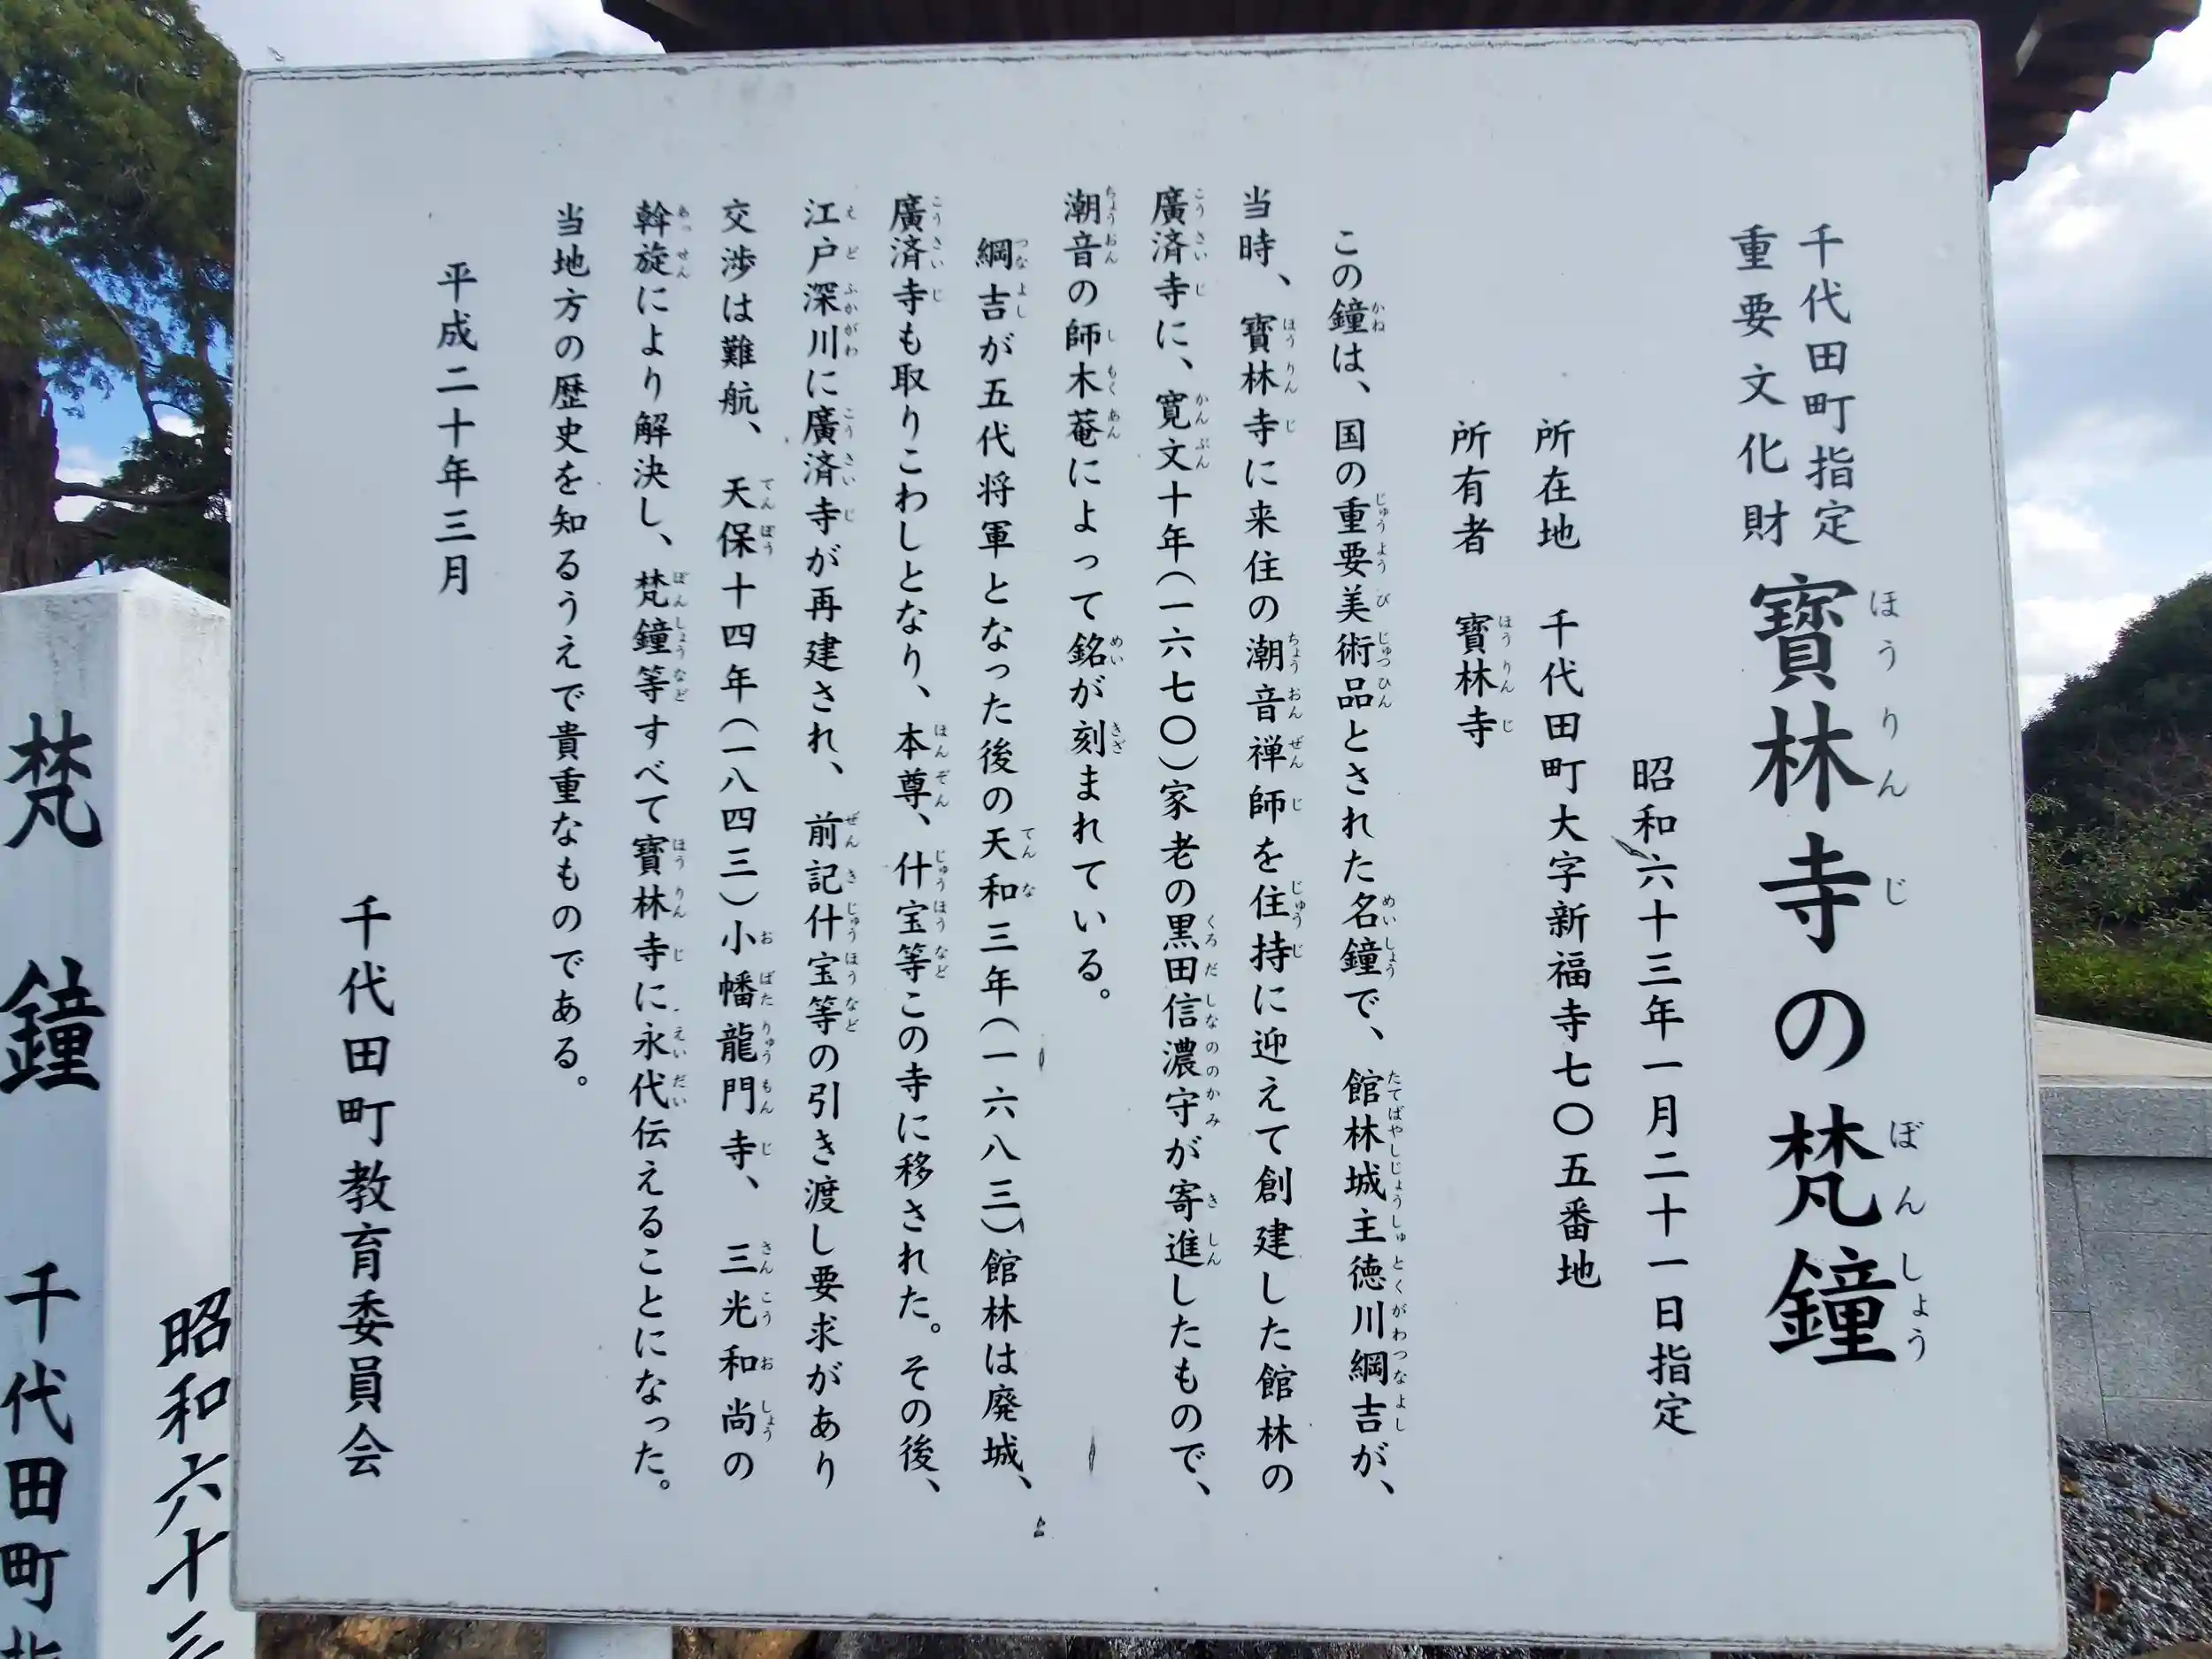 千代田町指定
重要文化財
寶林寺の梵鐘
ほうりんじ ぼんしょう
昭和六十三年一月二十一日指定
所在地 千代田町大字新福寺七〇五番地
所有者 寶林寺
この鐘は、国の重要美術品とされた名鐘で、館林城主徳川綱吉が、
当時、寶林寺に来住の潮音禅師を住持に迎えて創建した館林の
廣済寺に、寛文十年(一六七〇)家老の黒田信濃守が寄進したもので、
潮音の師木菴によって銘が刻まれている。
綱吉が五代将軍となった後の天和三年(一六八三)館林は廃城、
廣済寺も取りこわしとなり、本尊、什宝等この寺に移された。その後、
江戸深川に廣済寺が再建され、前記什宝等の引き渡し要求があり
交渉は難航、天保十四年(一八四三)小幡龍門寺、三光和尚の
斡旋により解決し、梵鐘等すべて寶林寺に永代伝えることになった。
当地方の歴史を知るうえで貴重なものである。
平成二十年三月
千代田町教育委員会
昭和六十三
梵鐘 千代田町指